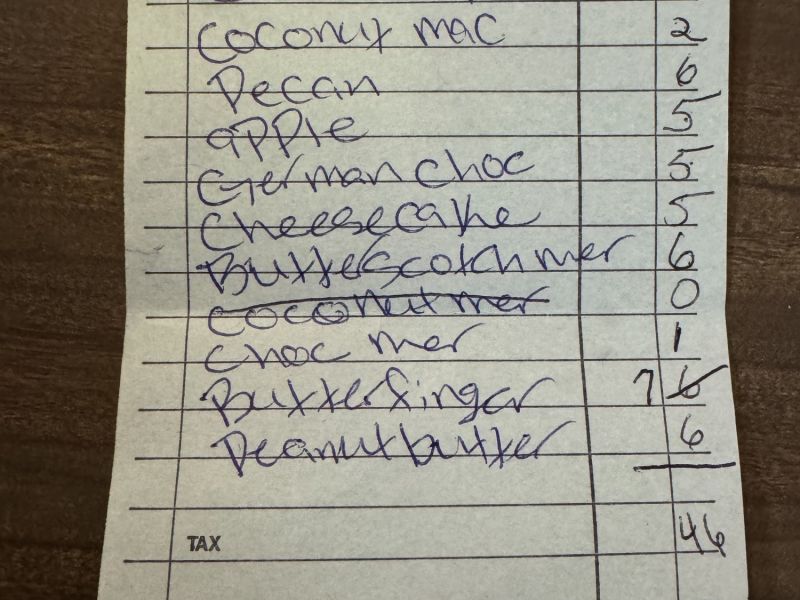 Coconut mac 2
Pecan 6
apple 5
German choc 5
Cheesecake 5
Butterscotch mer 6
coconut mer 0
choc mer 1
Butterfinger 7 6
Peanutbutter 6
46
TAX